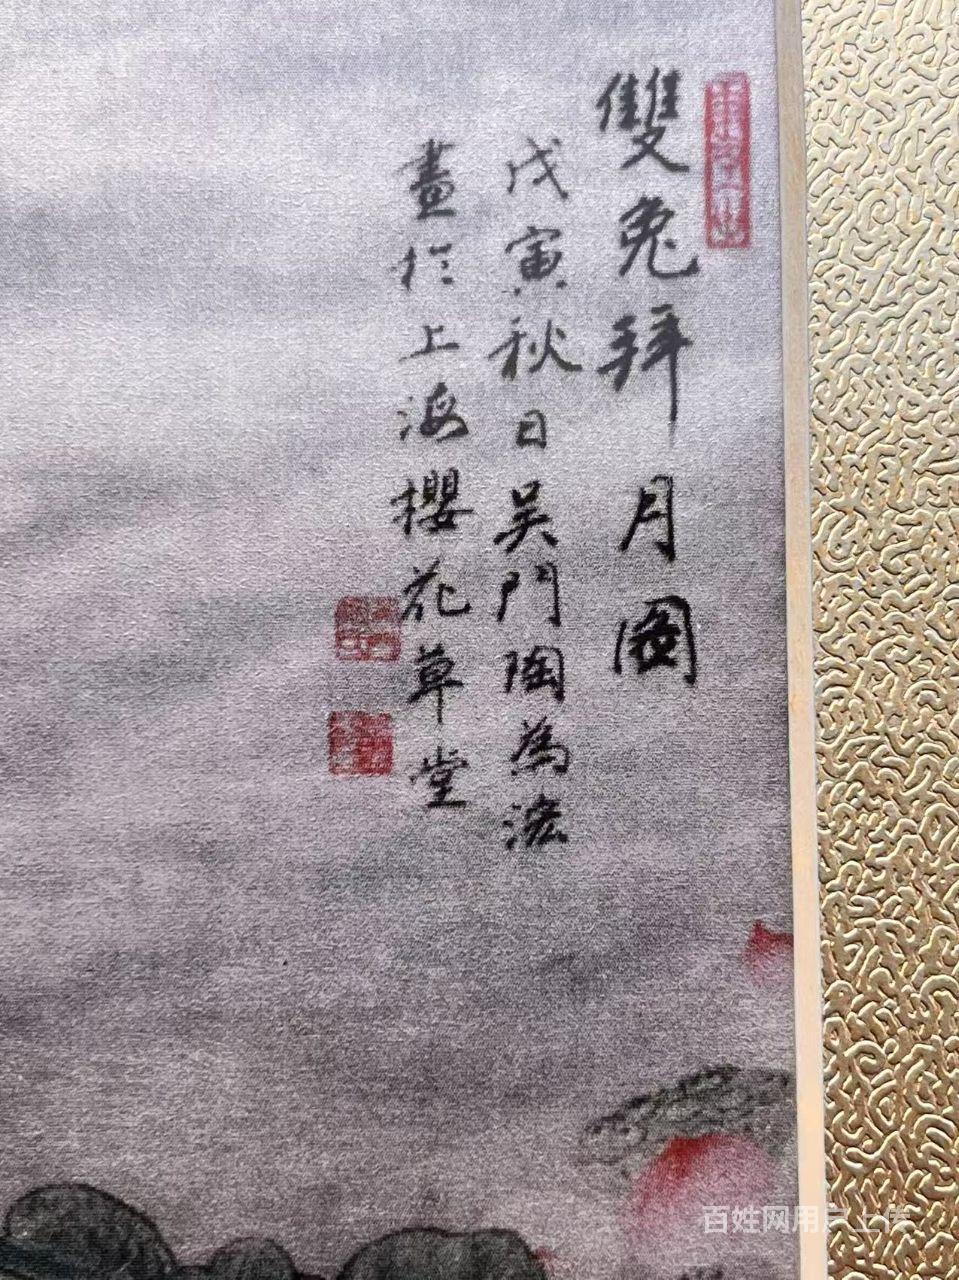 雙兔拜月圖
戊寅秋日吴門陶為浤
畫於上海櫻花草堂
百姓网用户上传